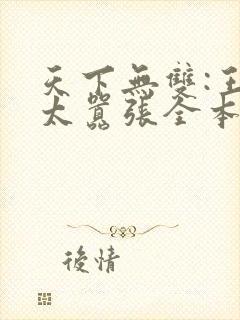 天下無雙:王
太囂張全本
後情